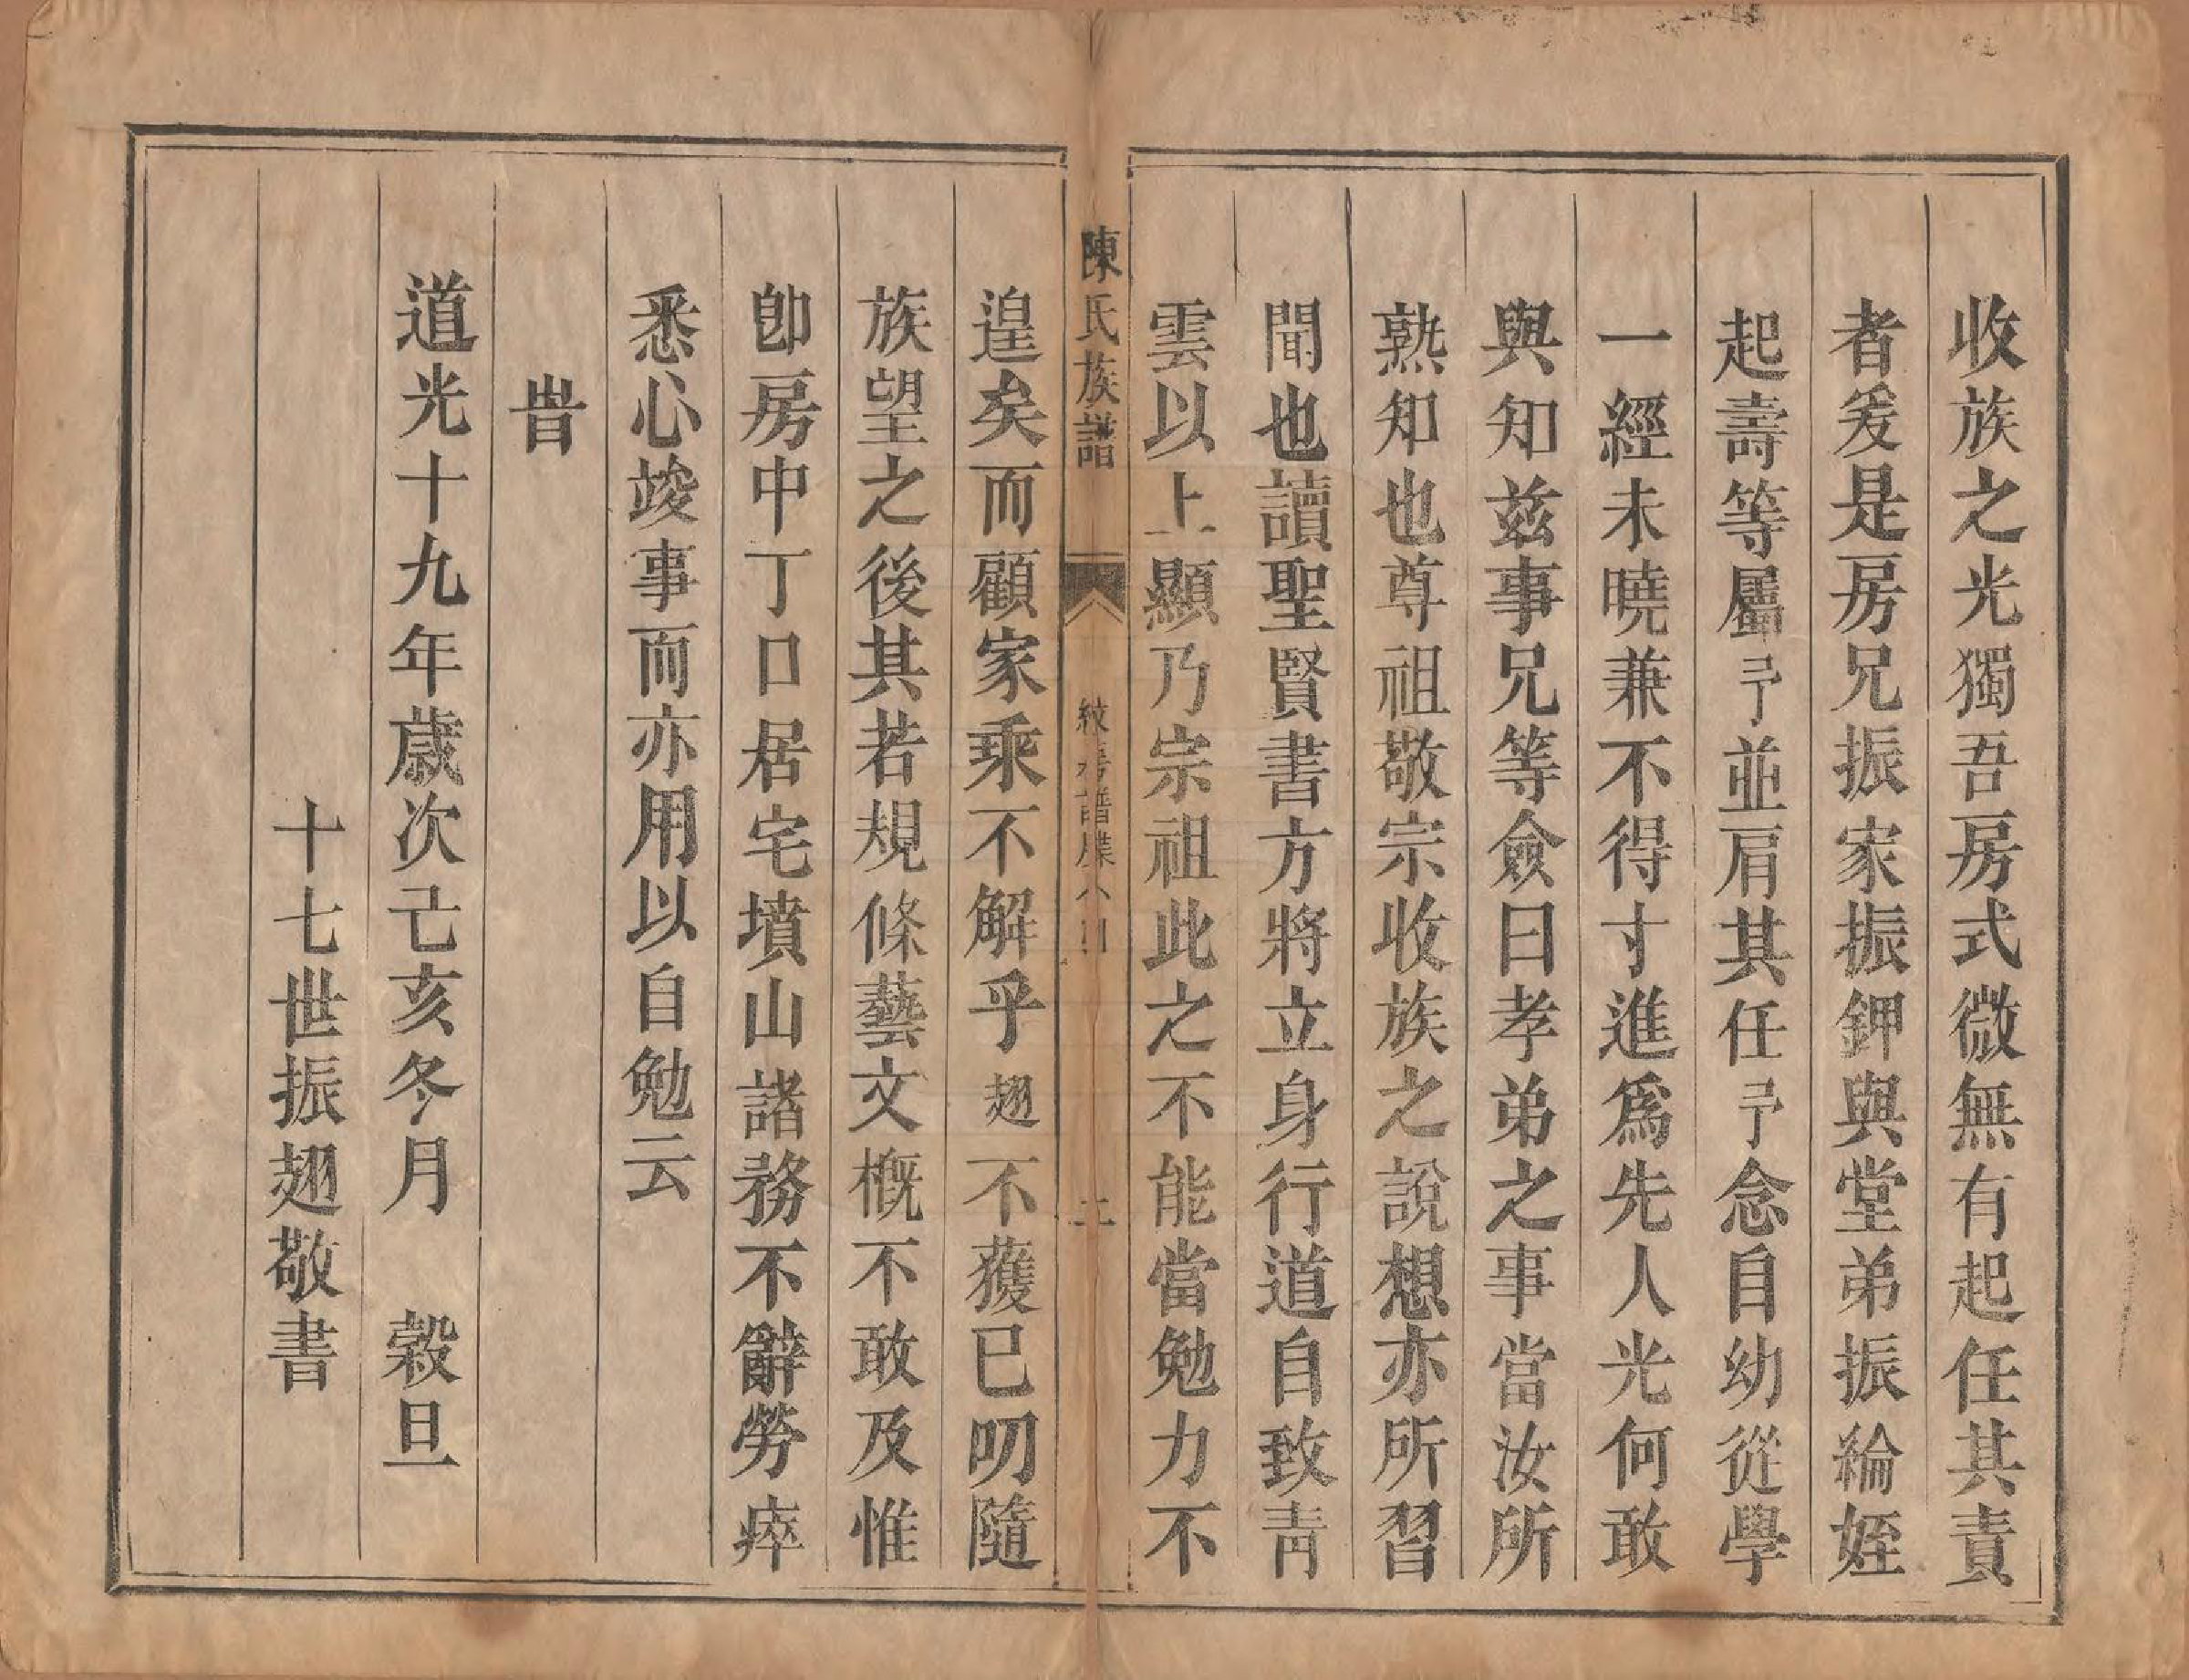 收族之光獨吾房式微無有起任其責
者爰是房兄振家振鉀與堂弟振綸姪
起壽等屬予並肩其任予念自幼從學
一經未曉兼不得寸進爲先人光何敢
與知兹事兄等僉曰孝弟之事當汝所
熟知也尊祖敬宗收族之說想亦所習
聞也讀聖賢書方將立身行道自致靑
雲以上顯乃宗祖此之不能當勉力不
陳氏族譜
譜牒
二
遑矣而顧家乘不解乎翅不獲已叨隨
族望之後其若規條藝文概不敢及惟
卽房中丁口居宅墳山諸務不辭勞瘁
悉心竣事而亦用以自勉云
旹
道光十九年歲次己亥冬月 榖旦
十七世振翅敬書